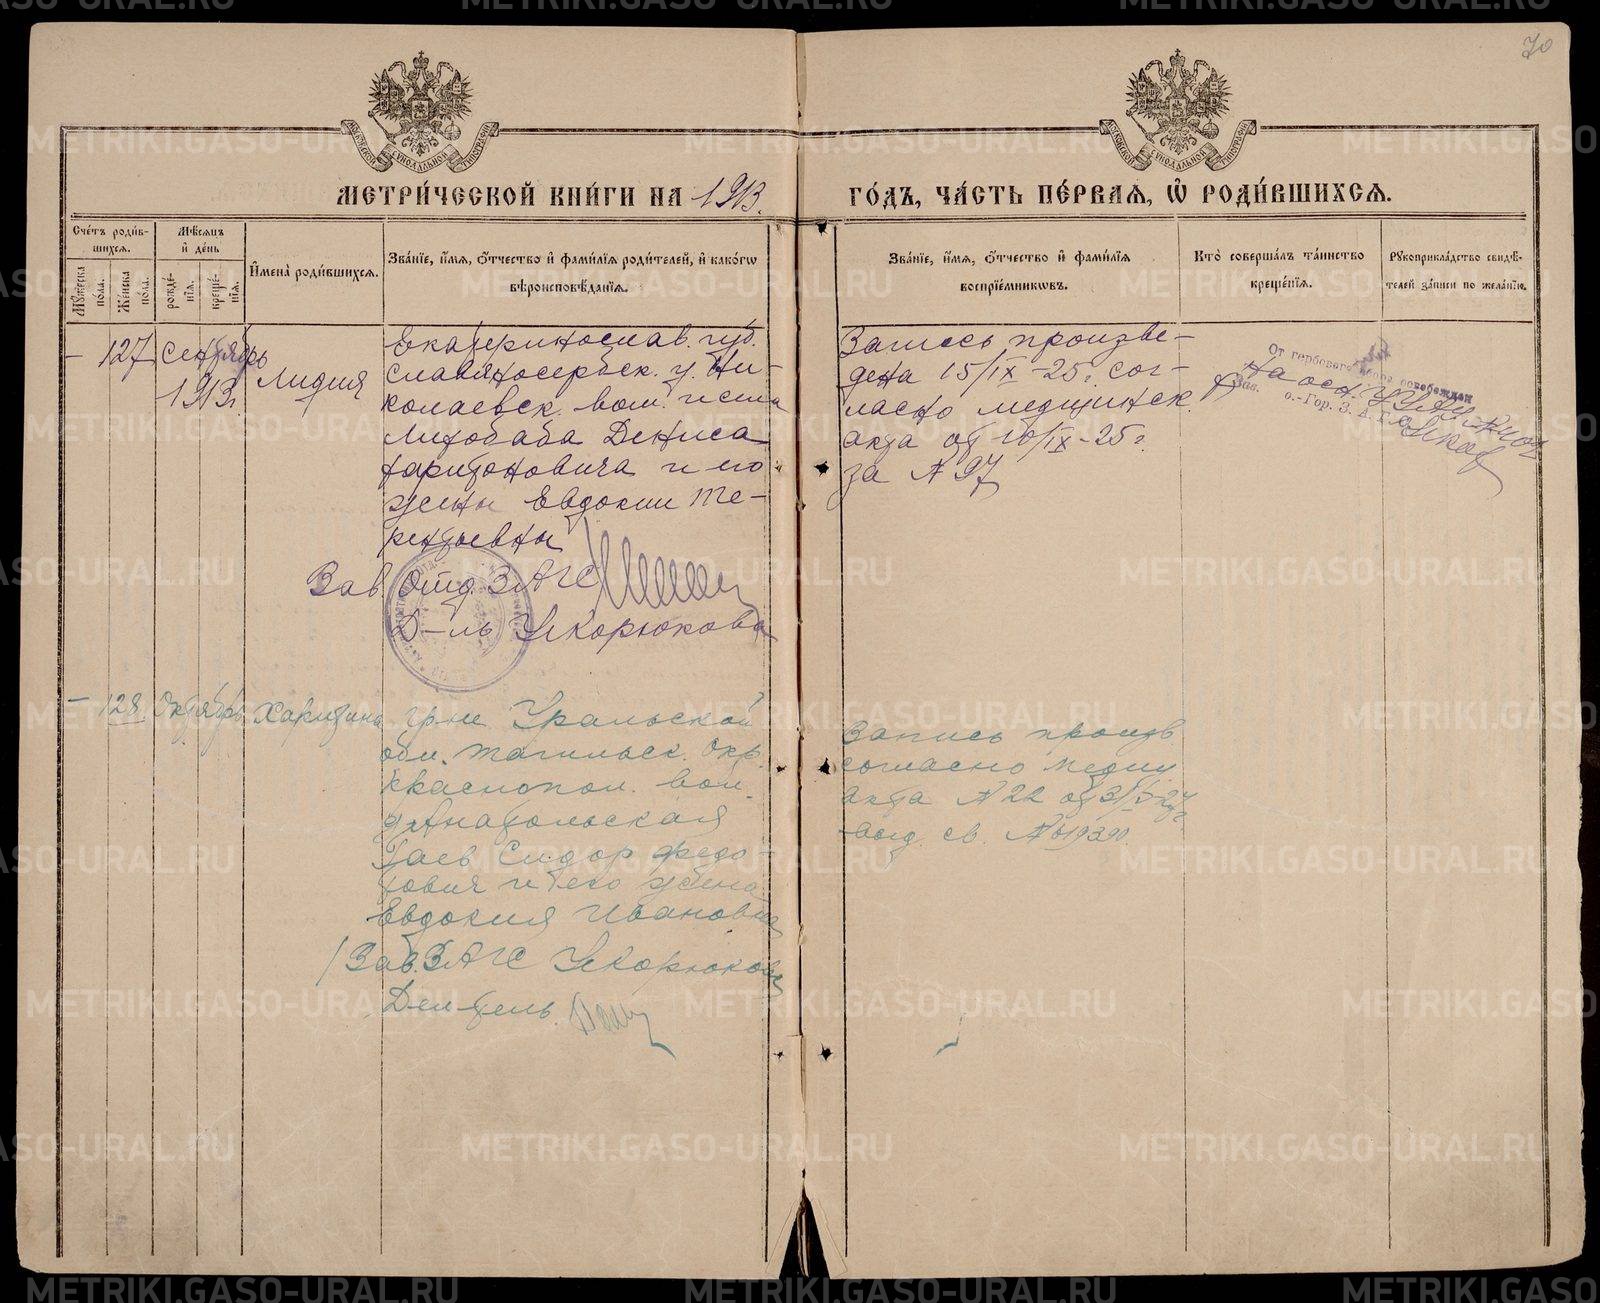 70
МЕТРИ́ЧЕСКОЙ КНИ́ГИ НА 1913. ГО́ДЪ, ЧА́СТЬ ПЕ́РВАѦ, Ѽ РОДИ́ВШИХСѦ.
Сче́тъ роди́в-
шихсѧ.
Мꙋ́жеска по́ла.
Же́нска по́ла.
Мѣ́сѧцъ
и҆ де́нь
рожде́-
нїѧ.
креще́-
нїѧ.
И҆мена̀ роди́вшихсѧ.
Зва́нїе, и҆́мѧ, ѻ҆́тчество и҆ фами́лїѧ роди́телей, и҆ како́гѡ
вѣроисповѣ́данїѧ.
Зва́нїе, и҆́мѧ, ѻ҆́тчество и҆ фами́лїѧ
воспрїе́мникѡвъ.
Кто̀ соверша́лъ та́инство
креще́нїѧ.
Рꙋкоприкла́дство свидѣ́-
телей за́писи по жела́нїю.
– 127 Сентябрь
1913г.
Лидия
Екатеринослав. губ.
Славяносербск. у. Ни-
колаевск. вол.
Лихобаба Дениса
Харитоновича и его
жены Евдокии Те-
рентьевны
Зав. Отд. ЗАГС
Д-ль Скорюкова
Запись произве-
дена 15/IX-25г. сог-
ласно медицинск.
акта от 10/IX-25г.
за № 97
От гербового сбора освобожден
Зав. о.-Гор. З. А. Г. С.
на осн.
– 128 Октябрь Харитина
гр-не Уральской
обл. Тагильск. Окр.
Краснопол. вол.
д. Анатольская
Гаев Сидор Федо-
тович и его жена
Евдокия Ивановна
Зав. ЗАГС Скорюкова
Дел-тель
Запись произв
согласно медиц
акта № 22 от
выд. св. №